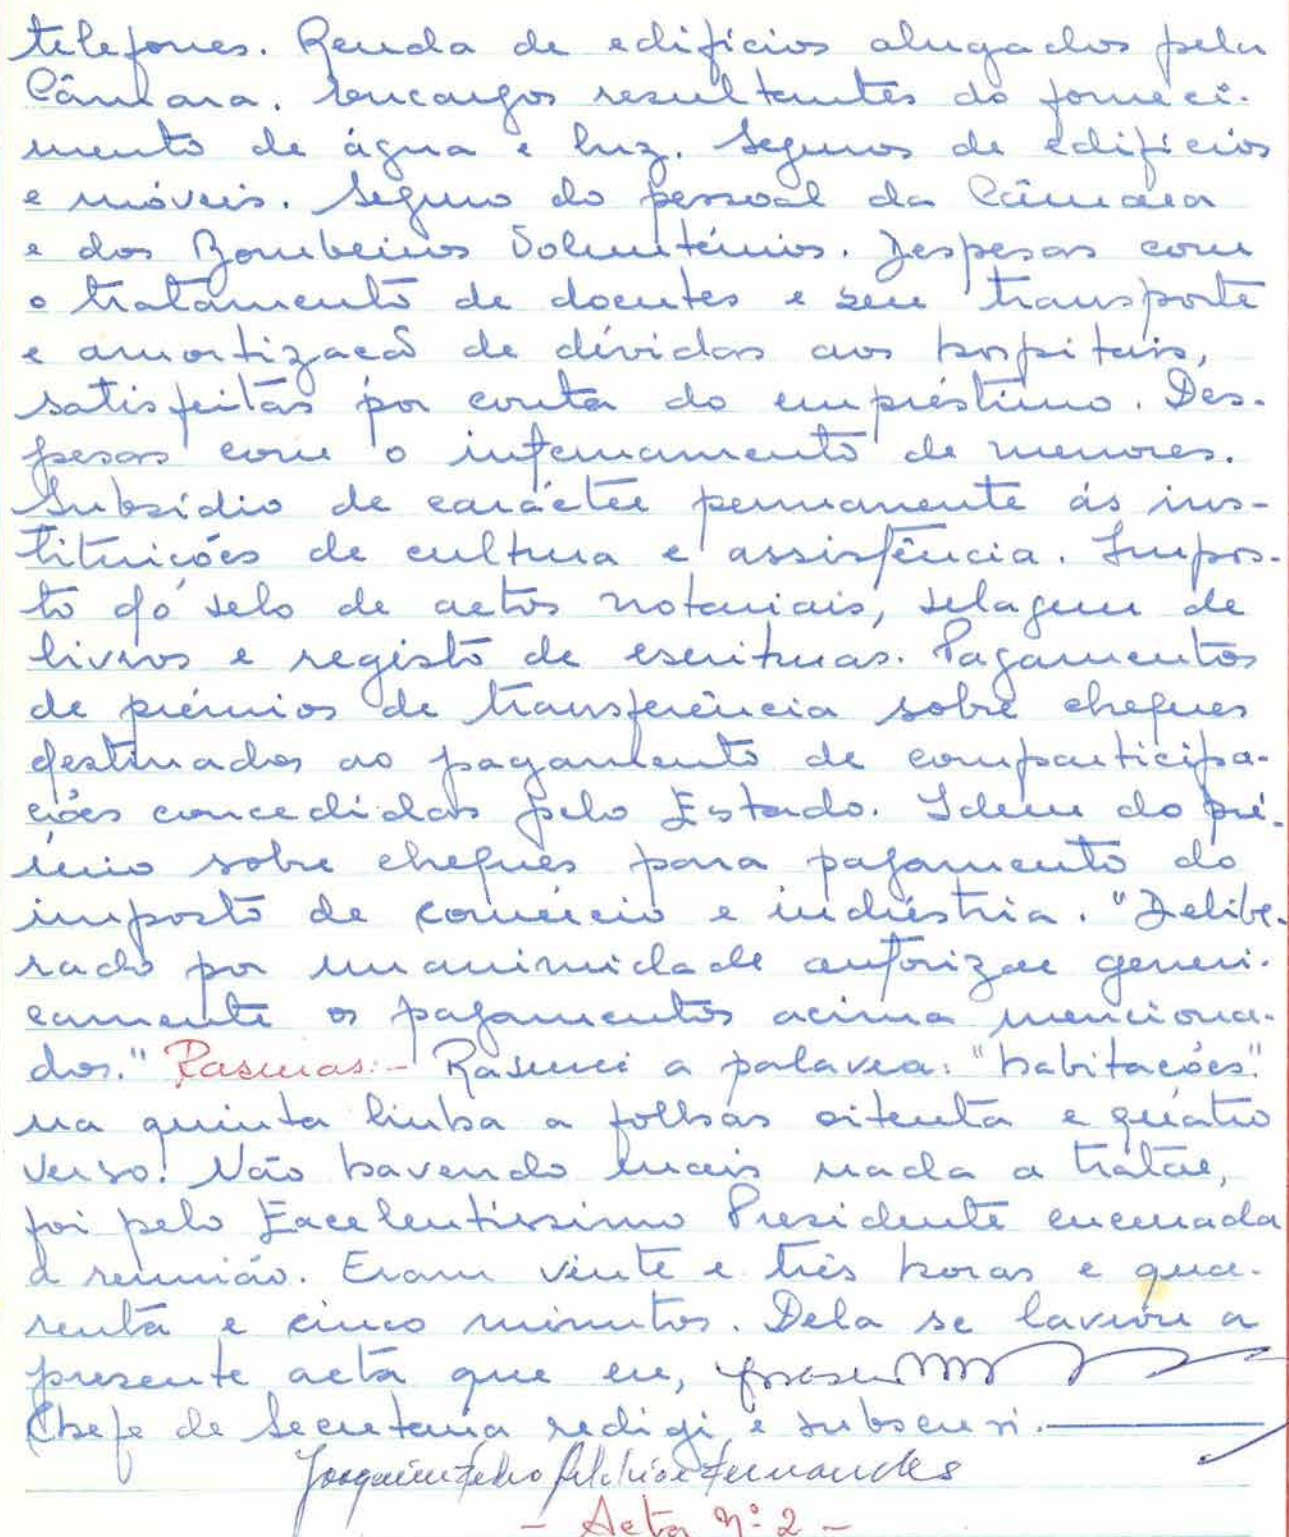 telefones. Renda de edifícios alugados pela
Câmara. Encargos resultantes do forneci-
mento de água e luz. Seguros de edifícios
e móveis. Seguro do pessoal da Câmara
e dos Bombeiros Voluntários. Despesas com
o tratamento de doentes e seu transporte
e amortizacão de dívidas aos hospitais,
satisfeitas por conta do empréstimo. Des-
pesas com o internamento de menores.
Subsídio de carácter permanente ás ins-
tituicóes de cultura e assistência. Impos-
to do selo de actos notariais, selagem de
livros e registo de escrituras. Pagamentos
de prémios de transferência sobre cheques
destinados ao pagamento de comparticipa-
cóes concedidas pelo Estado. Idem do pré-
mio sobre cheques para pagamento do
imposto de comércio e indústria. "Delibe-
rado por unanimidade autorizar generi-
camente os pagamentos acima menciona-
dos." Rasuras:- Rasurei a palavra: "habitacóes"
na quinta linha a folhas oitenta e quatro
verso. Não havendo mais nada a tratar,
foi pelo Excelentissimo Presidente encerrada
a reunião. Eram vinte e três horas e qua-
renta e cinco minutos. Dela se lavrou a
presente acta que eu,
Chefe de Secretaria redigi e subscrevi.
Joaquim Fernandes
- Acta nº 2 -